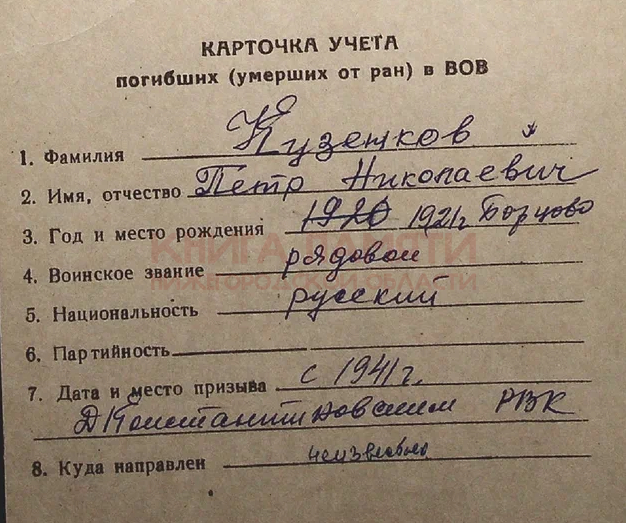 КАРТОЧКА УЧЕТА
погибших (умерших от ран) в ВОВ
1. Фамилия Кузенков
2. Имя, отчество Петр Николаевич
3. Год и место рождения 1920 1921г Борцово
КНИГА ПАМЯТИ
4. Воинское звание рядовой
НИЖЕГОРОДСКОЙ ОБЛАСТИ
5. Национальность русский
6. Партийность
7. Дата и место призыва с 1941г.
Д Константиновским РВК
8. Куда направлен неизвестно